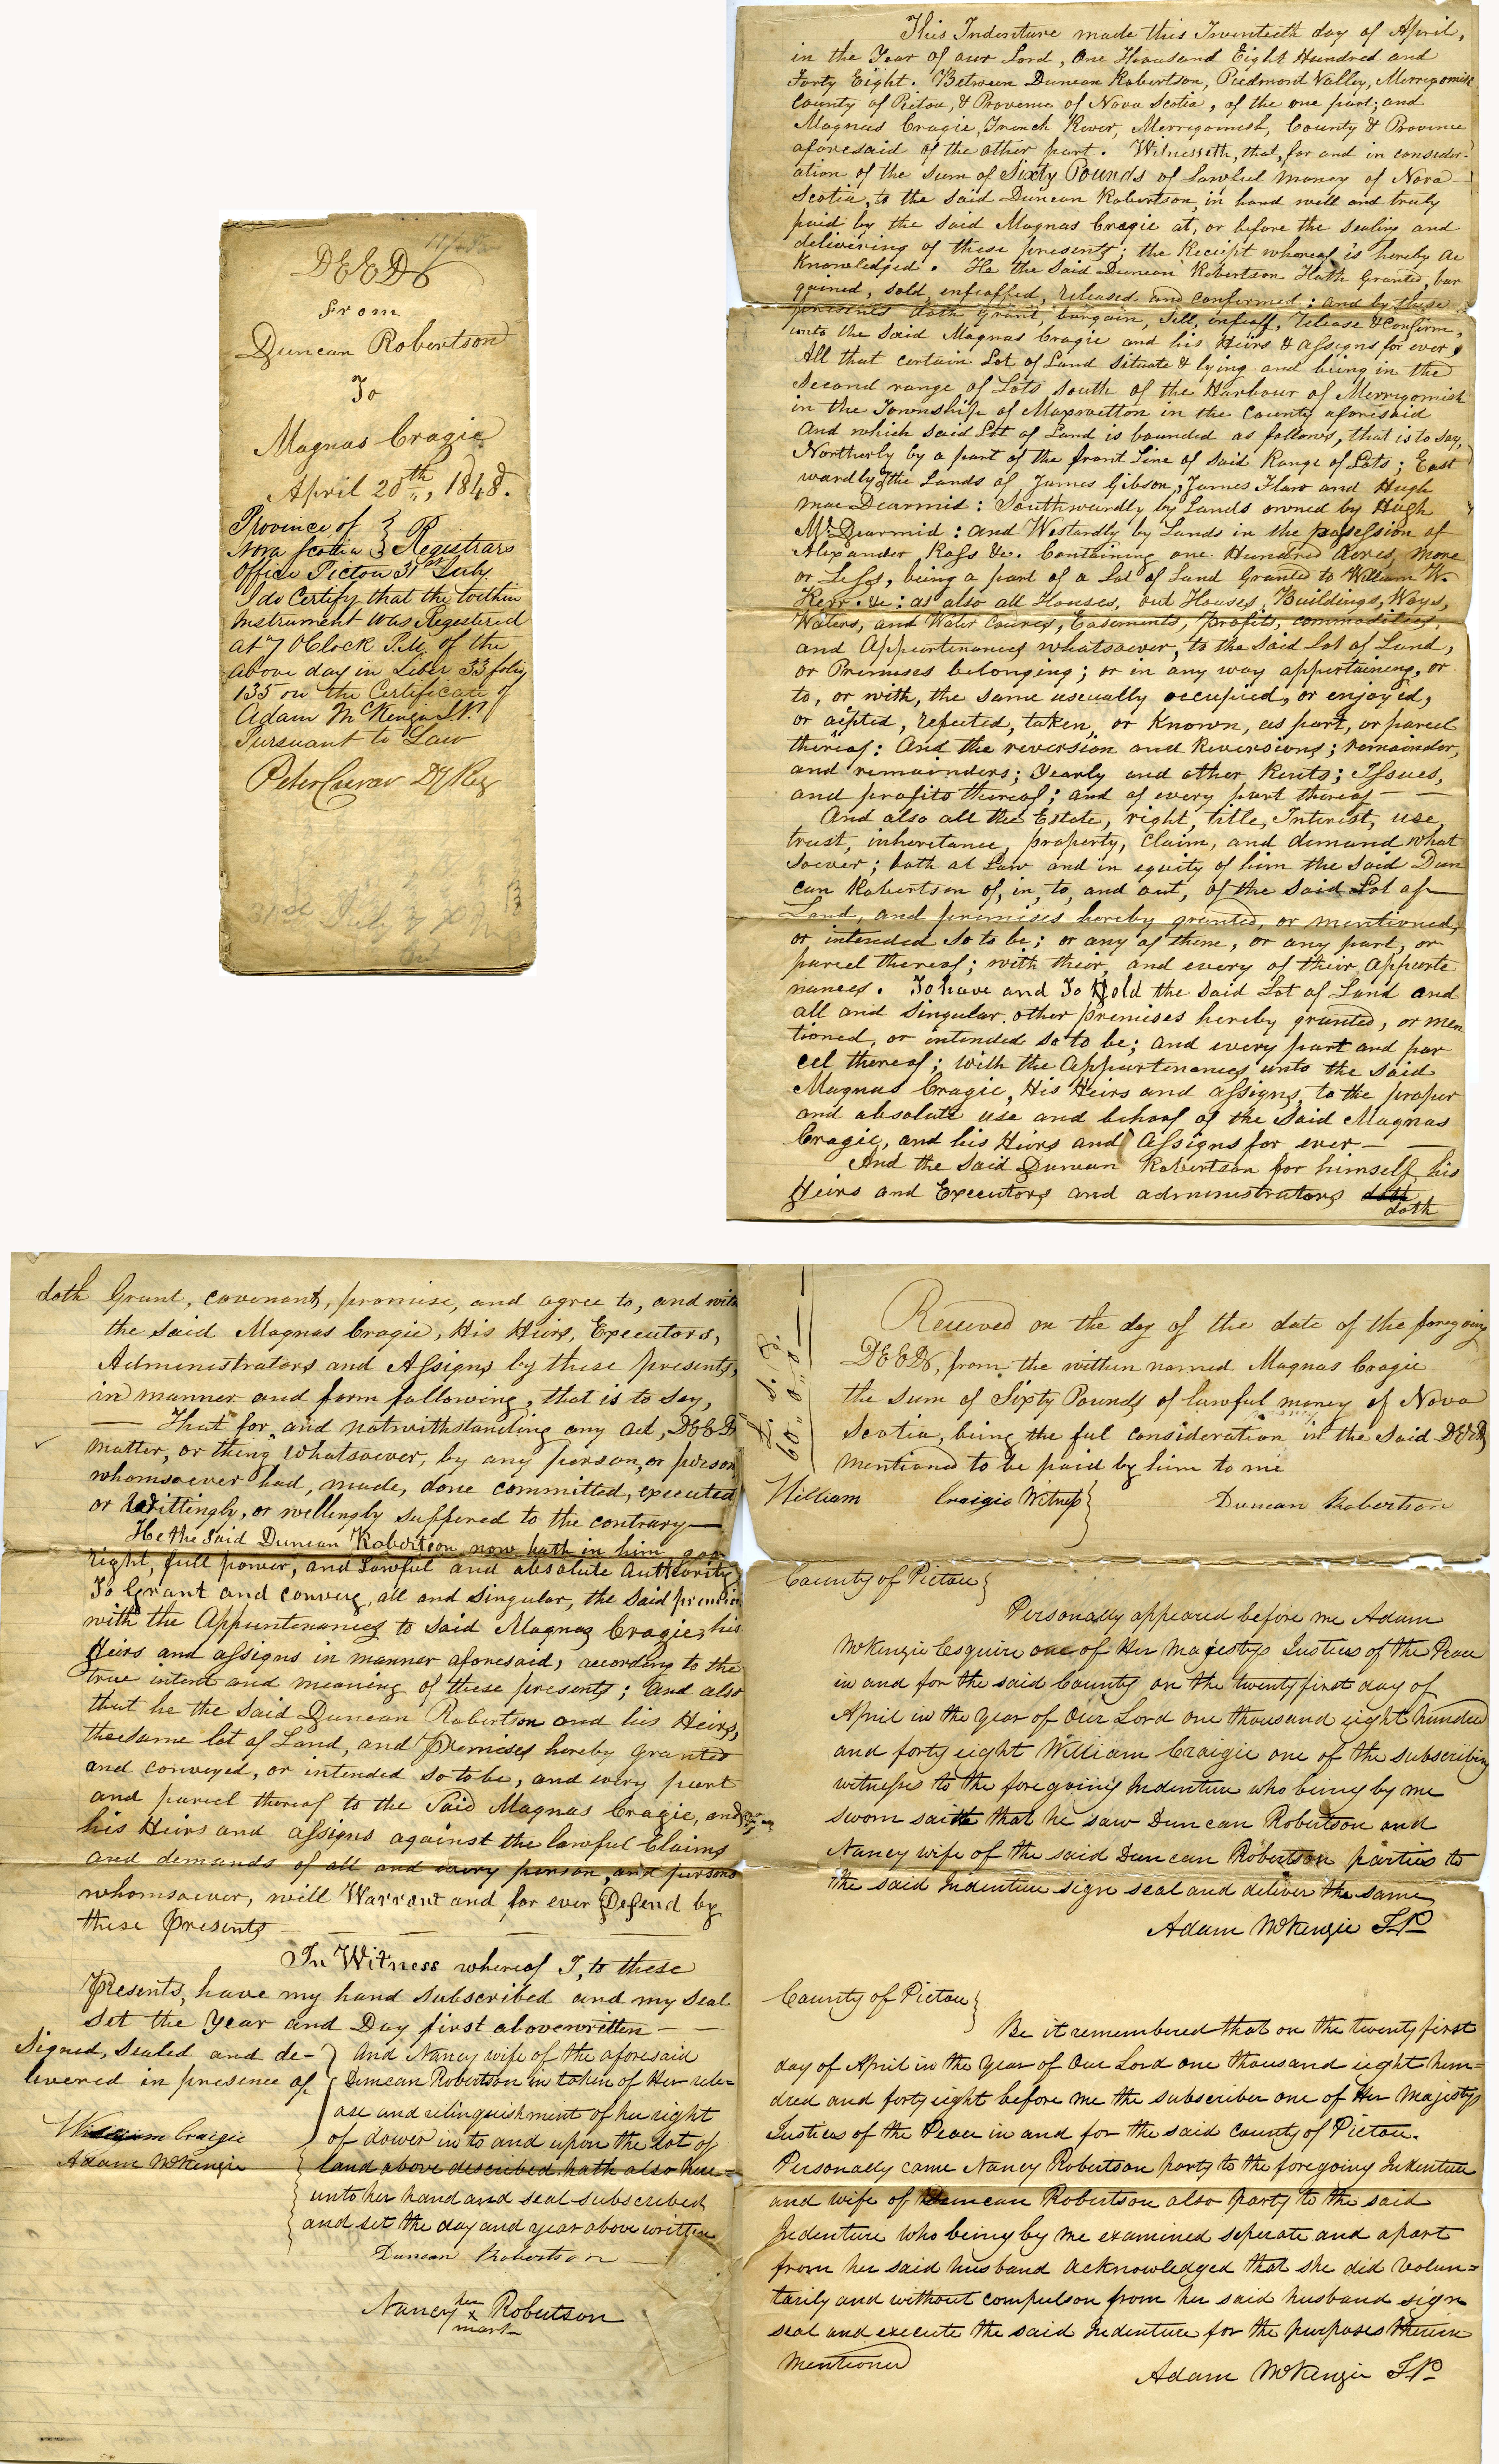 DEED
From
Duncan Robertson
To
Magnas Cragie
April 20th, 1848.
Province of } Registrars
Nova Scotia }
Office Pictou 31st July
I do Certify that the within
Instrument was Registered
at 7 OClock P.M. of the
above day in Liber 33 folio
135 on the Certificate of
Adam McKenzie J.P.
Pursuant to Law
Peter Crerar Dy Reg
31st July 7 P.M.
This Indenture made this Twentieth day of April,
in the Year of our Lord, One Thousand Eight Hundred and
Forty Eight. Between Duncan Robertson, Piedmont Valley, Merrigomish
County of Pictou, & Provence of Nova Scotia, of the one part; and
Magnas Cragie, French River, Merrigomish, County & Provence
aforesaid of the other part. Witnesseth, that, for and in consider-
ation of the sum of Sixty Pounds of Lawful money of Nova
Scotia, to the said Duncan Robertson, in hand well and truly
paid by the said Magnas Cragie at, or before the sealing and
delivering of these presents; the Receipt whereof is hereby ac
Knowledged. He the said Duncan Robertson Hath Granted, bar
gained, sold, enfeoffed, released and confirmed: and by these
presents doth grant, bargain, sell, enfeoff, release & confirm,
unto the said Magnas Cragie and his Heirs & assigns for ever,
All that certain Lot of Land situate & lying and being in the
second range of Lots south of the Harbour of Merrigomish
in the Township of Maxwelton in the County aforesaid
And which said Lot of Land is bounded as follows, that is to say,
Northerly by a part of the front Line of said Range of Lots; East
wardly by the Lands of James Gibson, James Flaw and Hugh
mac Dearmid: Southwardly by Lands owned by Hugh
Mc Dearmid: and Westardly by Lands in the possession of
Alexander Ross &c. Containing one Hundred Acres, more
or Less, being a part of a Lot of Land Granted to William W.
Kerr. &c: as also all Houses, out Houses, Buildings, Ways,
Waters, and Water Cources, Easements, Profits, commodities,
and Appurtenances whatsoever, to the said Lot of Land,
or Premises belonging; or in any way appertaining, or
to, or with, the same usually occupied, or enjoyed,
or acipted, reputed, taken, or Known, as part, or parcel
thereof: And the reversion and Reversions; remainder,
and remainders; Yearly and other Rents; Issues,
and profits thereof; and of every part thereof —
And also all the Estate, right, title, Interest, use,
trust, inheritance, property, claim, and demand what
soever; both at Law and in equity of him the said Dun
can Robertson of, in, to, and out, of the said Lot of
Land, and premises hereby granted, or mentioned,
or intended so to be; or any of them, or any part, or
parcel thereof; with their, and every of their appurte
nances. To have and To Hold the said Lot of Land and
all and singular other premises hereby granted, or men
tioned, or intended so to be; and every part and par
cel thereof; with the Appurtenances unto the said
Magnas Cragie, His Heirs and assigns, to the proper
and absolute use and behoof of the said Magnas
Cragie, and his Heirs and Assigns for ever —
And the said Duncan Robertson for himself, his
Heirs and Executors and administrators doth
doth
doth Grant, covenant, promise, and agree to, and with
the said Magnas Cragie, His Heirs, Executors,
Administrators and Assigns by these presents,
in manner and form following, that is to say,
— That for, and notwithstanding any act, DEED
matter, or thing whatsoever, by any person, or person
whomsoever had, made, done committed, executed
or Wittingly, or willingly suffered to the contrary —
He the said Duncan Robertson now hath in him goo
right, full power, and Lawful and absolute Authority
To Grant and convey, all and singular, the said premises
with the Appurtenances to said Magnas Cragie, his
Heirs and assigns in manner aforesaid, according to the
true intent and meaning of these presents; and also
that he the said Duncan Robertson and his Heirs,
the same lot of Land, and Premises hereby granted
and conveyed, or intended so to be, and every part
and parcel thereof to the said Magnas Cragie, and
his Heirs and assigns against the lawful Claims
and demands of all and every person, and persons
whomsoever, will Warrant and for ever Defend by
these Presents —
In Witness whereof I, to these
Presents, have my hand subscribed and my seal
set the Year and Day first abovewritten —
Signed, Sealed and de-
livered in presence of
William Craigie
Adam McKenzie
And Nancy wife of the aforesaid
Duncan Robertson in token of Her rele=
ase and relinquishment of her right
of dower in to and upon the lot of
land above described hath also here=
unto her hand and seal subscribed
and set the day and year above written
Duncan Robertson
Nancy her x mark Robertson
£. s. d.
60,, 0,, 0
Received on the day of the date of the foregoing
DEED, from the within named Magnas Cragie
the sum of Sixty Pounds of lawful money of Nova
Scotia, being the ful consideration in the said DEED
mentioned to be paid by him to me
William Craigie Witness } Duncan Robertson
County of Pictou }
Personally appeared before me Adam
McKenzie Esquire one of Her Majestys Justices of the Peace
in and for the said County on the twenty first day of
April in the year of Our Lord one thousand eight hundred
and forty eight William Craigie one of the subscribing
witnesses to the foregoing Indenture who being by me
sworn saith that he saw Duncan Robertson and
Nancy wife of the said Duncan Robertson parties to
the said Indenture sign seal and deliver the same
Adam McKenzie J.P.
County of Pictou }
Be it remembered that on the twenty first
day of April in the year of Our Lord one thousand eight hun=
dred and forty eight before me the subscriber one of Her Majestys
Justices of the Peace in and for the said County of Pictou.
Personally came Nancy Robertson party to the foregoing Indenture
and wife of Duncan Robertson also party to the said
Indenture who being by me examined seperate and apart
from her said husband acknowledged that she did volun=
tarily and without compulson from her said husband sign
seal and execute the said Indenture for the purposes therein
mentioned
Adam McKenzie J.P.